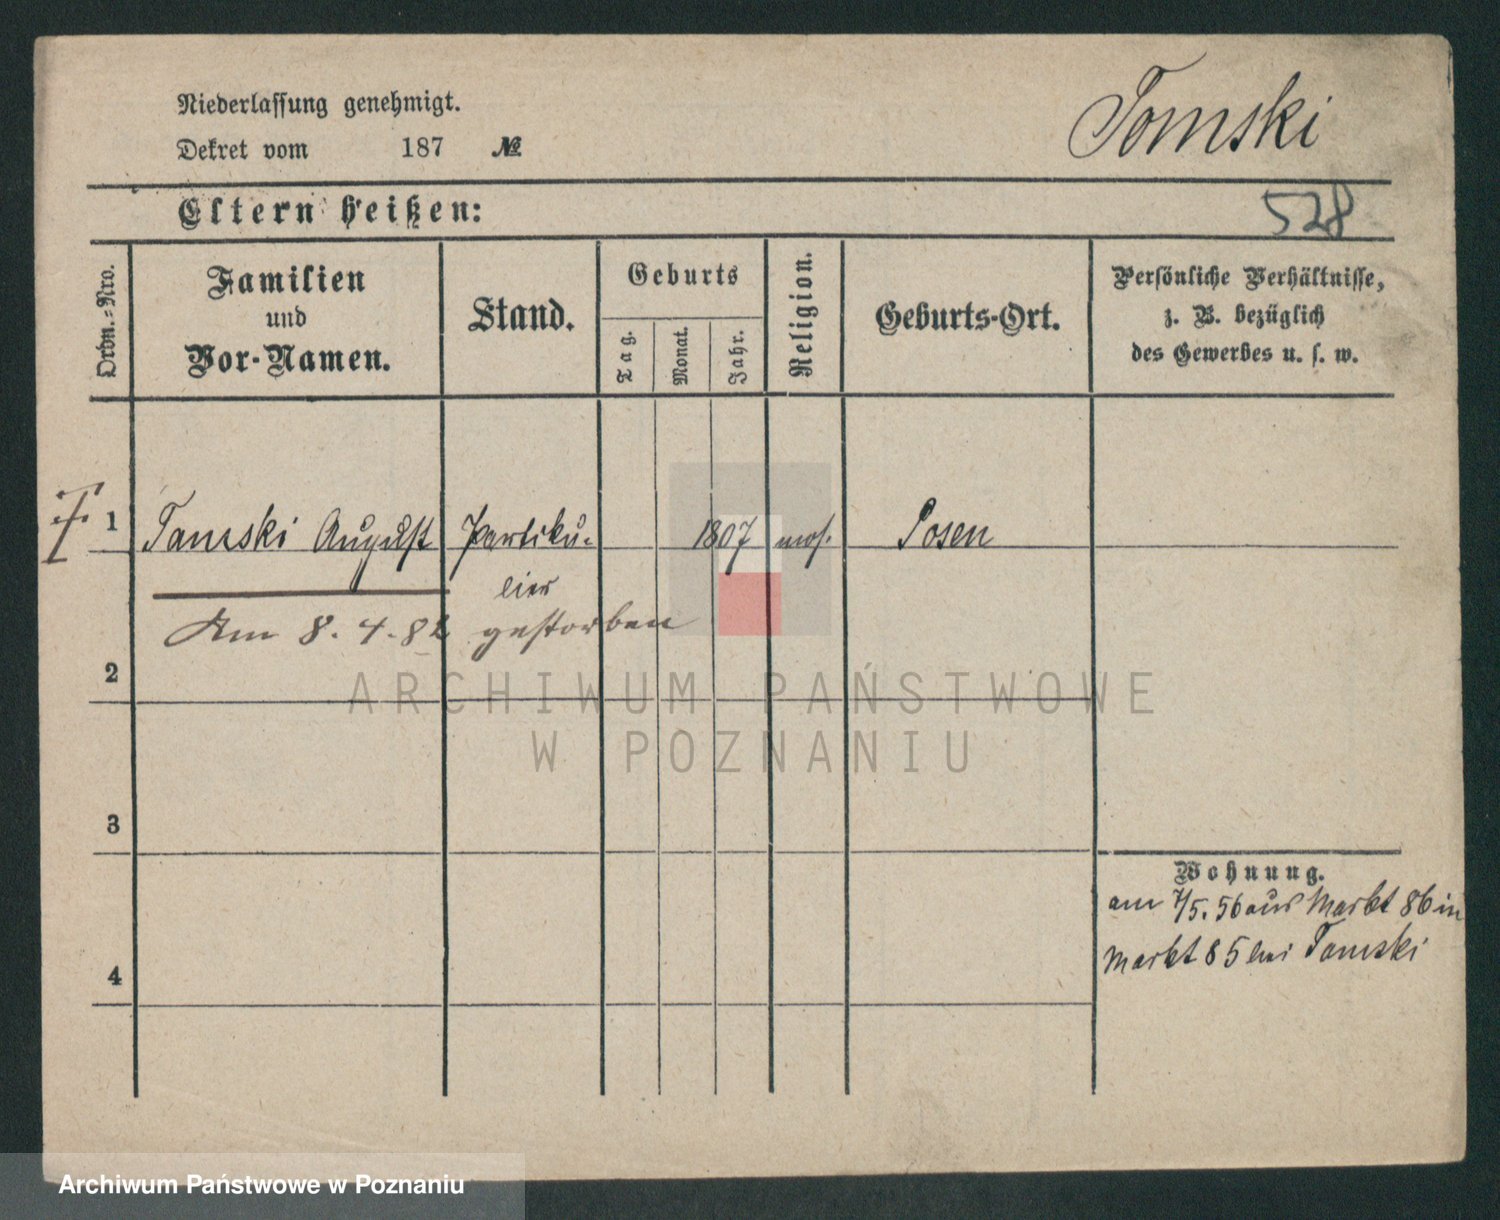 Niederlassung genehmigt.
Tomski
Dekret vom 187 №
Eltern heißen:
528
Ordn.-Nro.
Familien
und
Vor-Namen.
Stand.
Geburts
Tag.
Monat.
Jahr.
Religion.
Geburts-Ort.
Persönliche Verhältnisse,
z. B. bezüglich
des Gewerbes u. s. w.
1 Tomski August Partiku- 1807 mos. Posen
lier
Am 8. 4. 82 gestorben
2
ARCHIWUM PAŃSTWOWE
W POZNANIU
3
Wohnung.
am 7/5. 56 aus Markt 86 in
Markt 85 bei Tomski
4
Archiwum Państwowe w Poznaniu